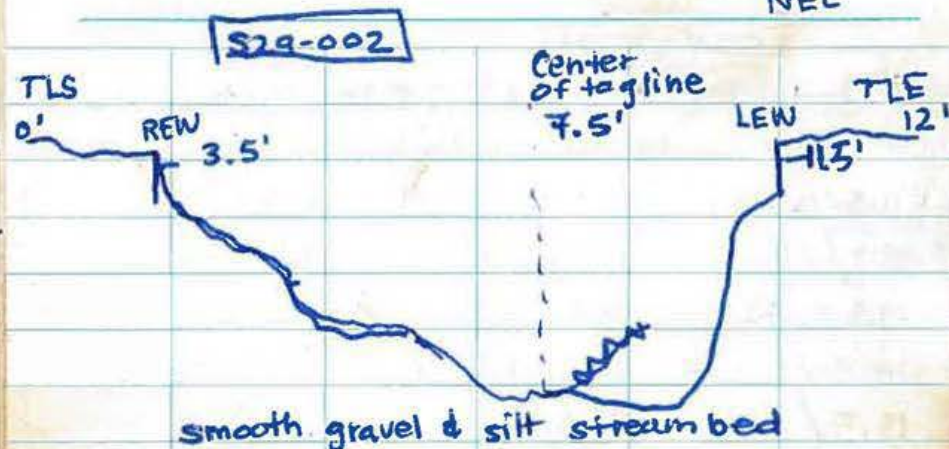 NEL
S29-002
TLS
0'
REW
3.5'
Center
of tagline
7.5'
LEW
11.5'
TLE
12'
smooth gravel & silt streambed